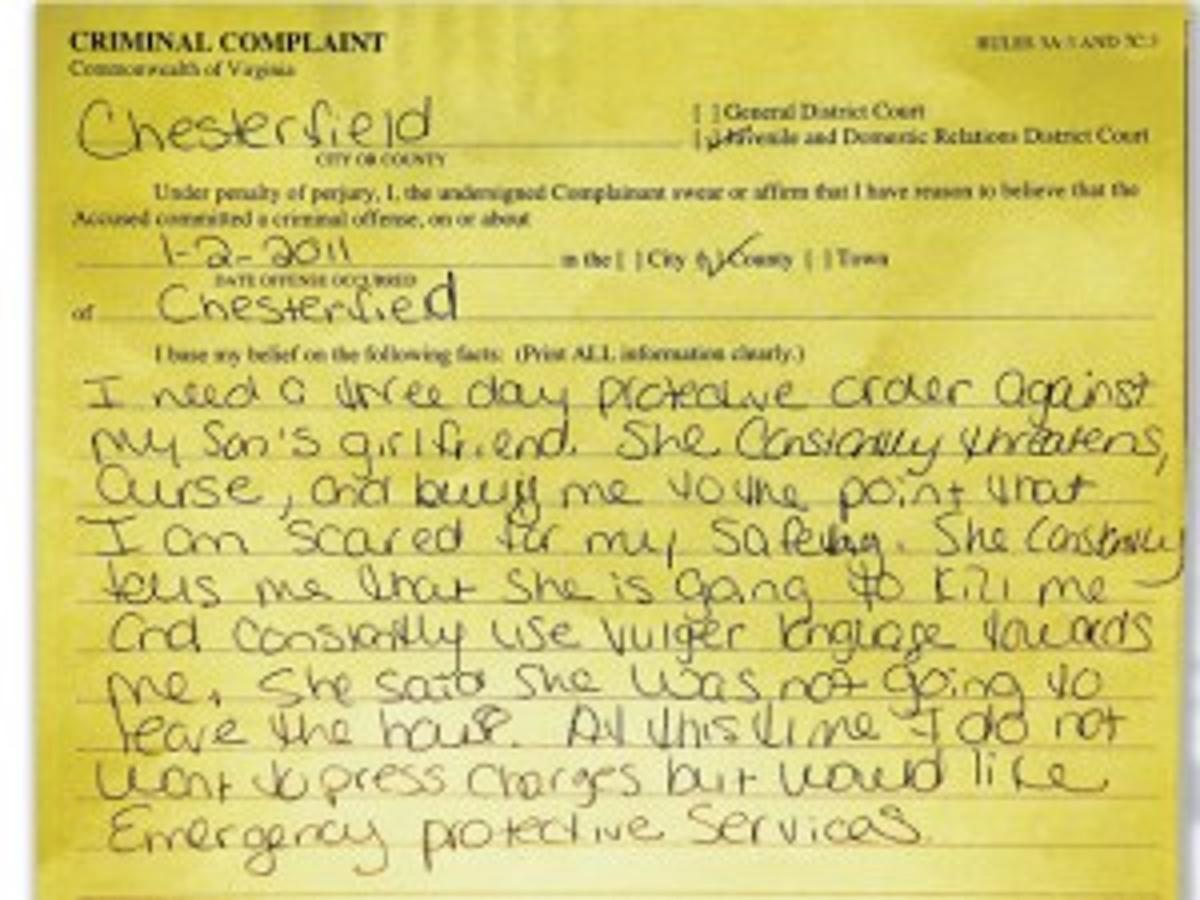 CRIMINAL COMPLAINT
RULES 3A:3 AND 7C:3
Commonwealth of Virginia
Chesterfield
CITY OR COUNTY
[ ] General District Court
[✓] Juvenile and Domestic Relations District Court
Under penalty of perjury, I, the undersigned Complainant swear or affirm that I have reason to believe that the
Accused committed a criminal offense, on or about
1-2-2011 in the [ ] City [✓] County [ ] Town
DATE OFFENSE OCCURRED
of Chesterfield
I base my belief on the following facts: (Print ALL information clearly.)
I need a three day protective order against
my Son's girlfriend. She Constantly threatens,
Curse, and bully me to the point that
I am scared for my safety. She Constantly
tells me that she is going to kill me
And Constantly use vulger language towards
me. She said she was not going to
leave the house. At this time I do not
want to press charges but would like
Emergency protective Services.